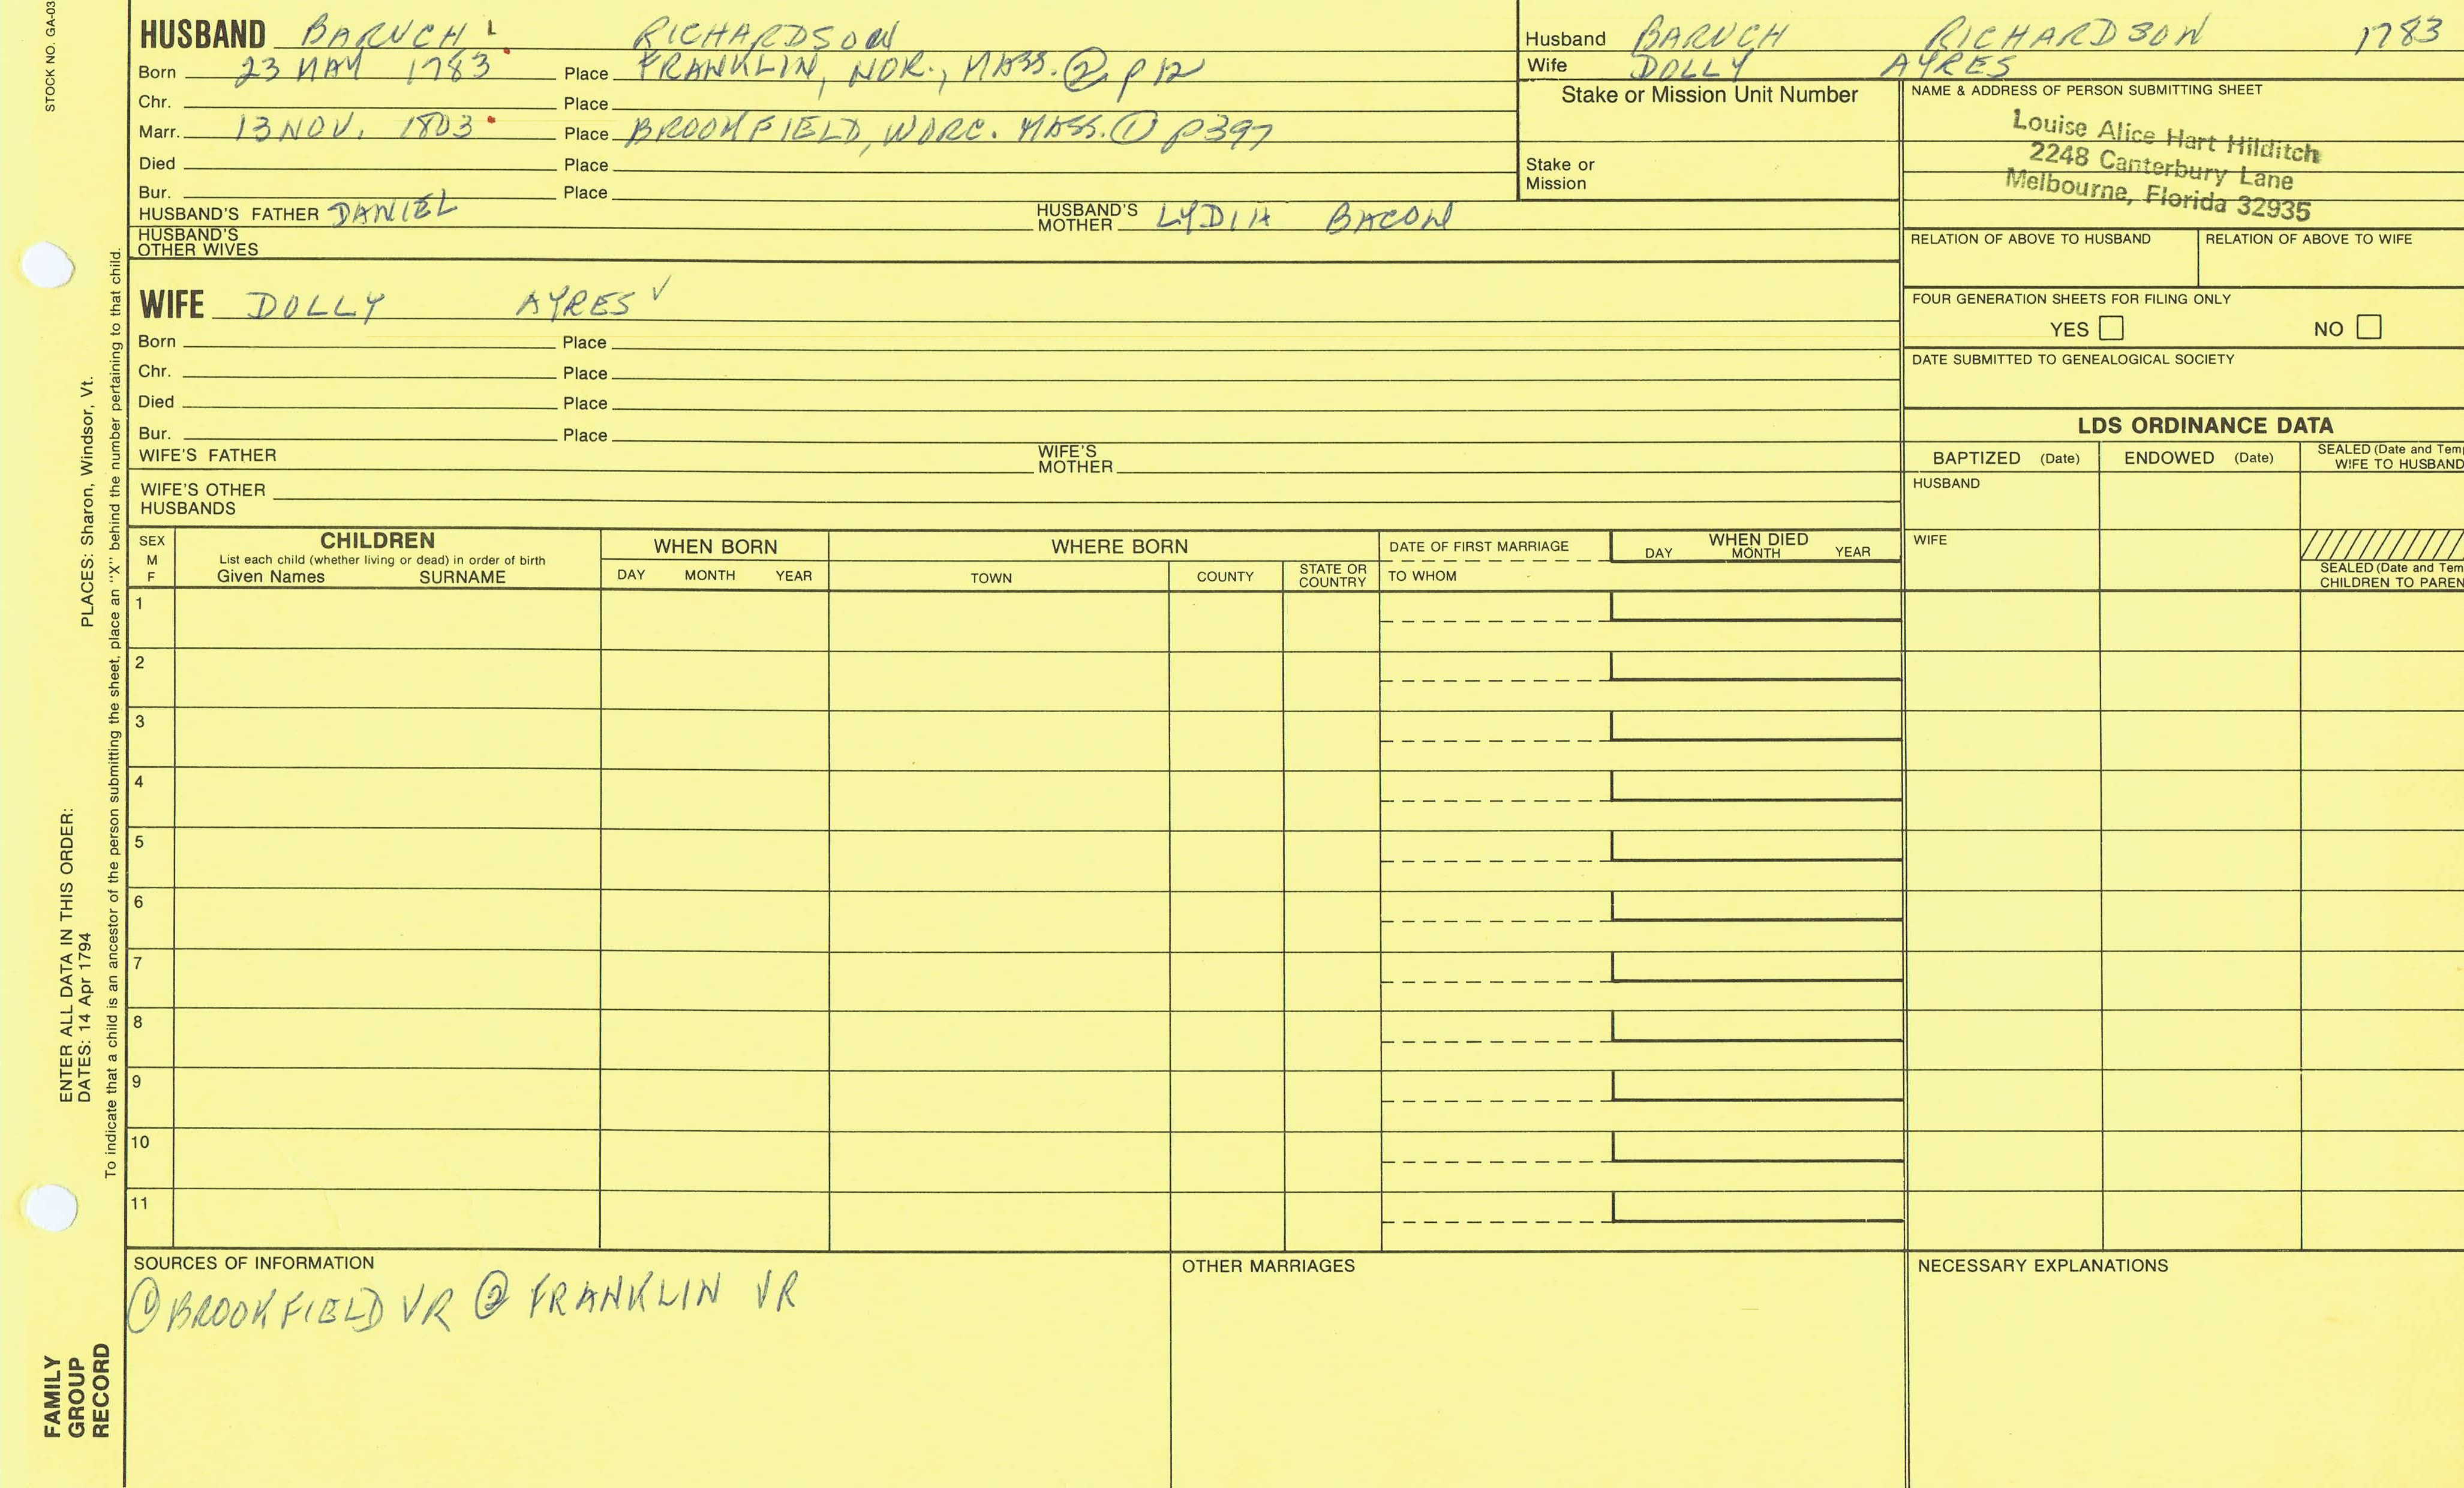 STOCK NO. GA-03
HUSBAND BARUCH RICHARDSON
Born 23 MAY 1783 Place FRANKLIN, NOR., MASS. ② P 12
Chr. Place
Marr. 13 NOV. 1803 Place BROOKFIELD, WORC. MASS. ① P397
Died Place
Bur. Place
HUSBAND'S FATHER DANIEL HUSBAND'S MOTHER LYDIA BACON
HUSBAND'S OTHER WIVES
Husband BARUCH RICHARDSON 1783
Wife DOLLY AYRES
Stake or Mission Unit Number
Stake or
Mission
NAME & ADDRESS OF PERSON SUBMITTING SHEET
Louise Alice Hart Hilditch
2248 Canterbury Lane
Melbourne, Florida 32935
RELATION OF ABOVE TO HUSBAND RELATION OF ABOVE TO WIFE
FOUR GENERATION SHEETS FOR FILING ONLY
YES NO
DATE SUBMITTED TO GENEALOGICAL SOCIETY
WIFE DOLLY AYRES ✓
Born Place
Chr. Place
Died Place
Bur. Place
WIFE'S FATHER WIFE'S MOTHER
WIFE'S OTHER
HUSBANDS
LDS ORDINANCE DATA
BAPTIZED (Date) ENDOWED (Date) SEALED (Date and Tem
WIFE TO HUSBAND
HUSBAND
WIFE
SEALED (Date and Tem
CHILDREN TO PAREN
SEX
M
F
CHILDREN
List each child (whether living or dead) in order of birth
Given Names SURNAME
WHEN BORN
DAY MONTH YEAR
WHERE BORN
TOWN COUNTY STATE OR COUNTRY
DATE OF FIRST MARRIAGE
TO WHOM
WHEN DIED
DAY MONTH YEAR
1
2
3
4
5
6
7
8
9
10
11
SOURCES OF INFORMATION
① BROOKFIELD VR ② FRANKLIN VR
OTHER MARRIAGES
NECESSARY EXPLANATIONS
ENTER ALL DATA IN THIS ORDER:
DATES: 14 Apr 1794 PLACES: Sharon, Windsor, Vt.
To indicate that a child is an ancestor of the person submitting the sheet, place an "X" behind the number pertaining to that child.
FAMILY
GROUP
RECORD